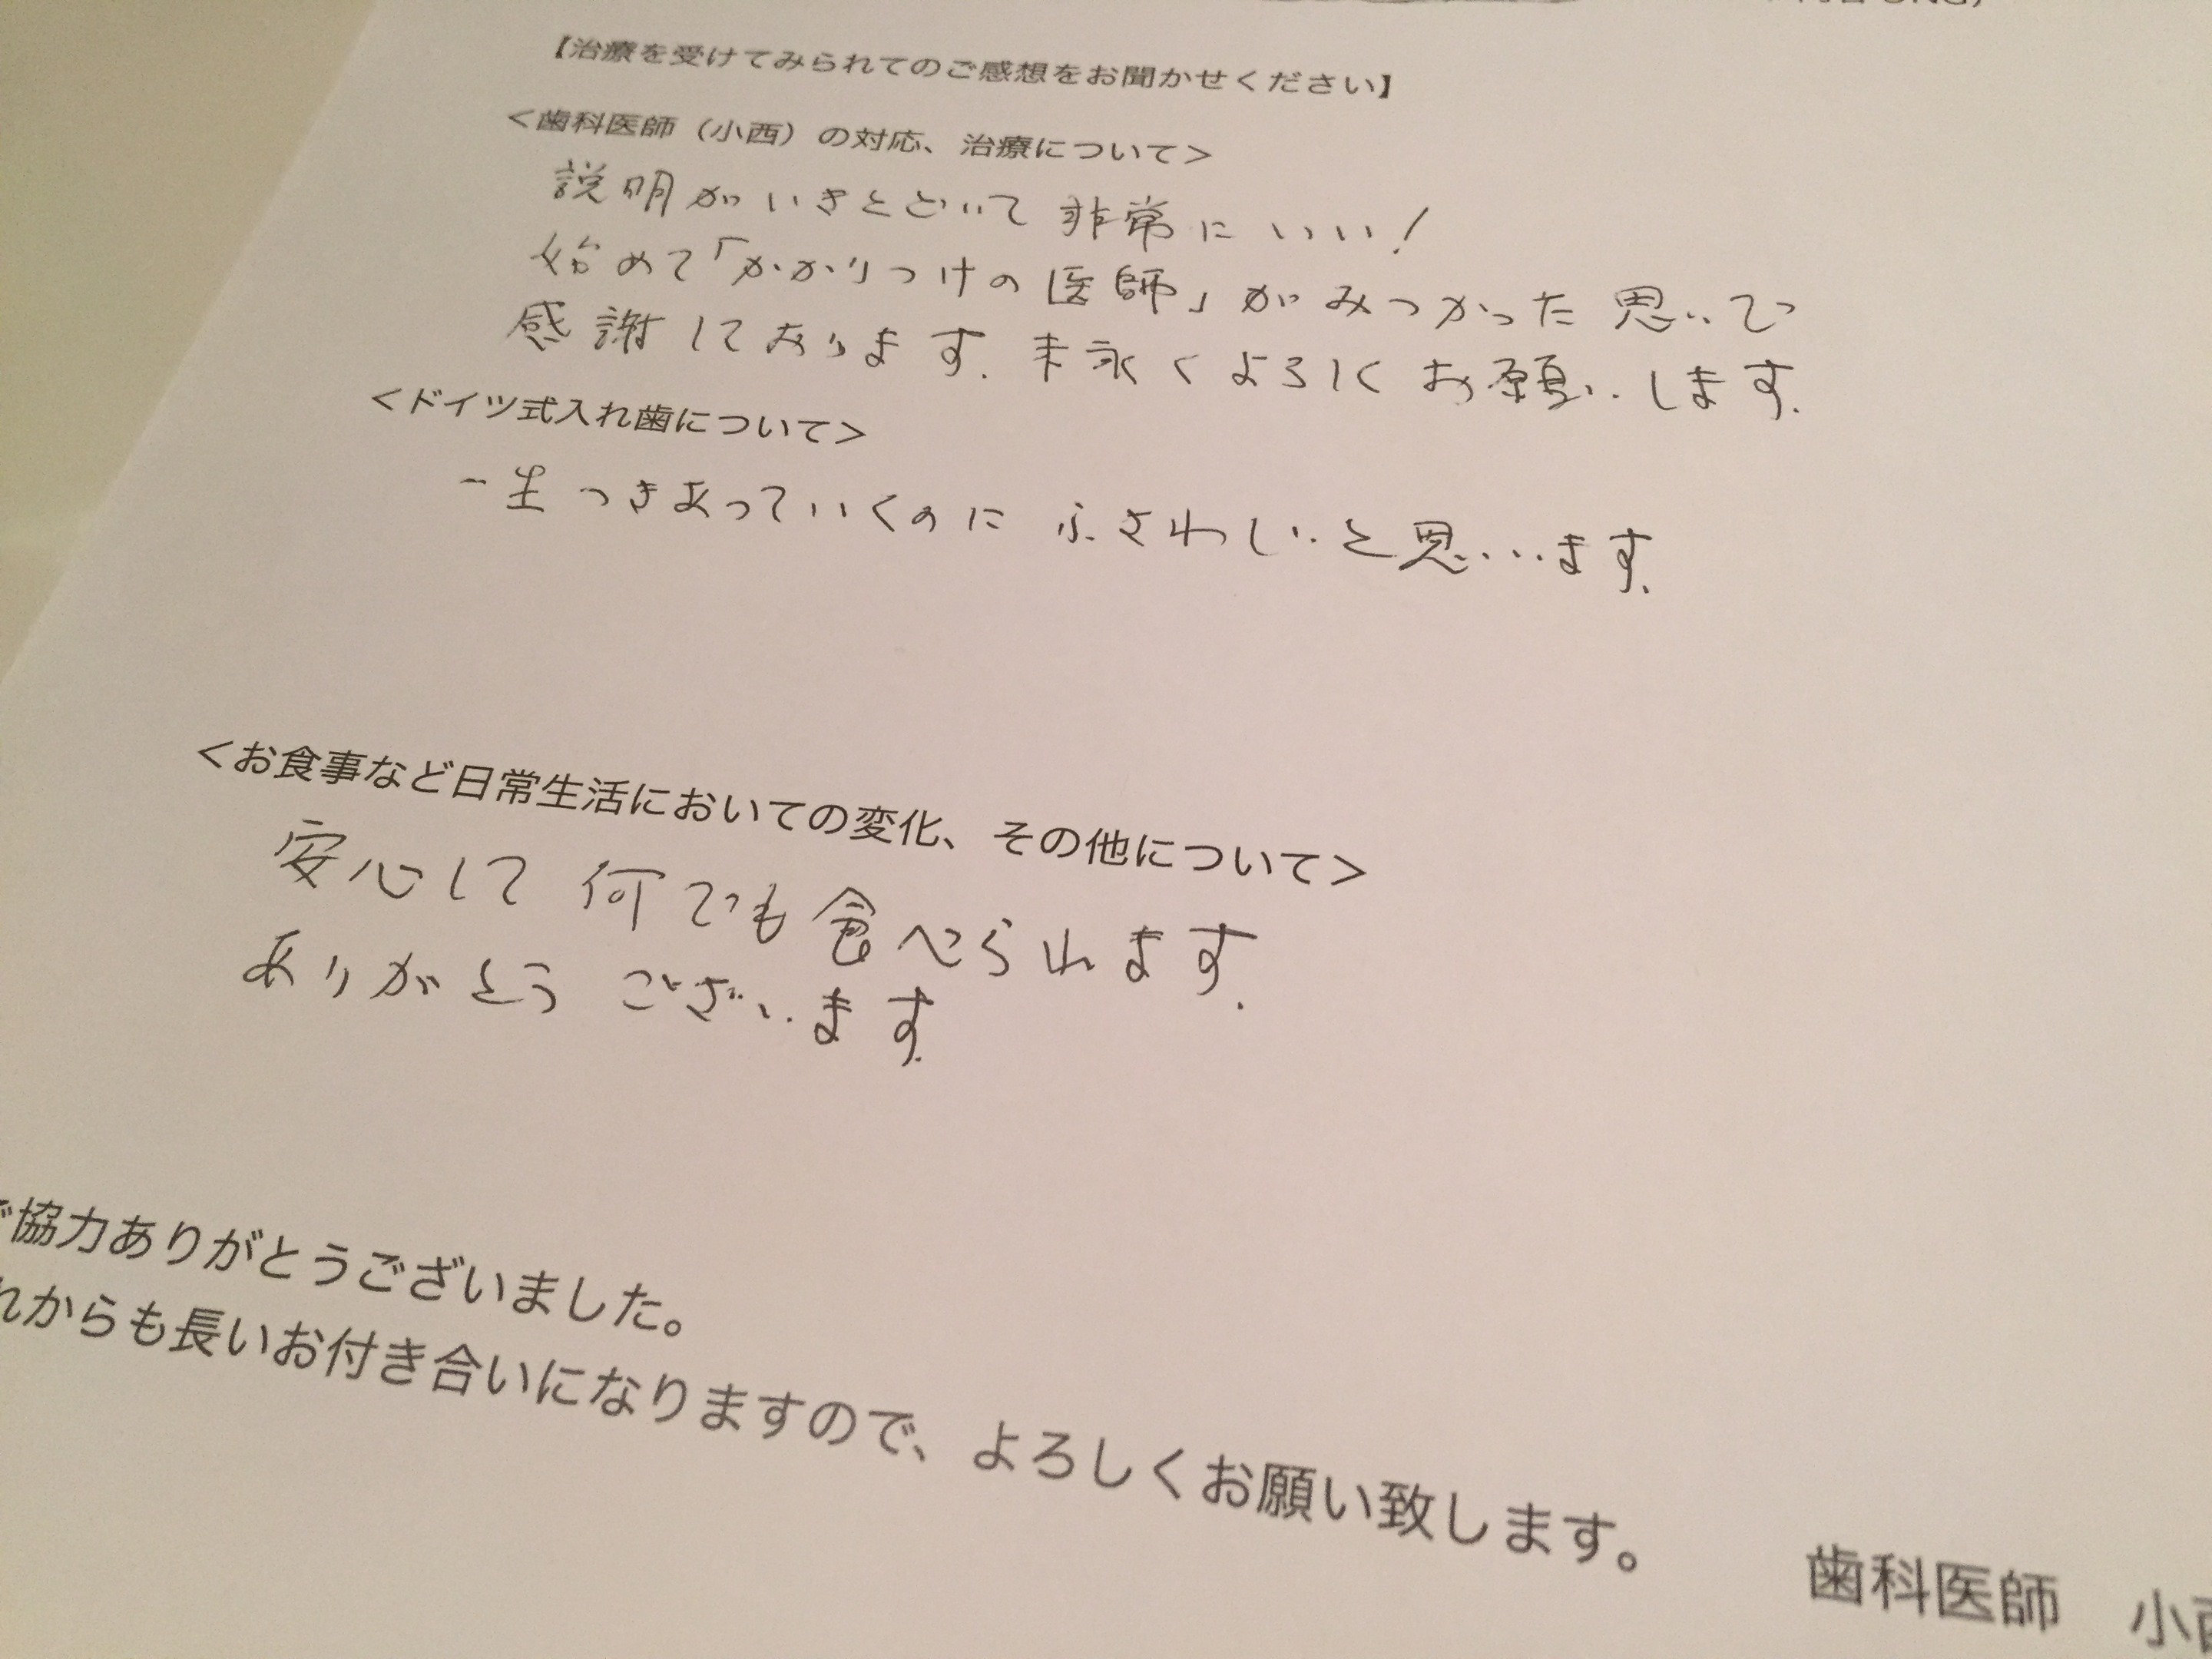 【治療を受けてみられてのご感想をお聞かせください】
<歯科医師（小西）の対応、治療について>
説明がいきとどいて非常にいい!
始めて「かかりつけの医師」がみつかった思いで
感謝しております. 末永くよろしくお願いします.
<ドイツ式入れ歯について>
一生つきあっていくのにふさわしいと思います.
<お食事など日常生活においての変化、その他について>
安心して何でも食べられます.
ありがとうございます.
ご協力ありがとうございました。
れからも長いお付き合いになりますので、よろしくお願い致します。
歯科医師 小西